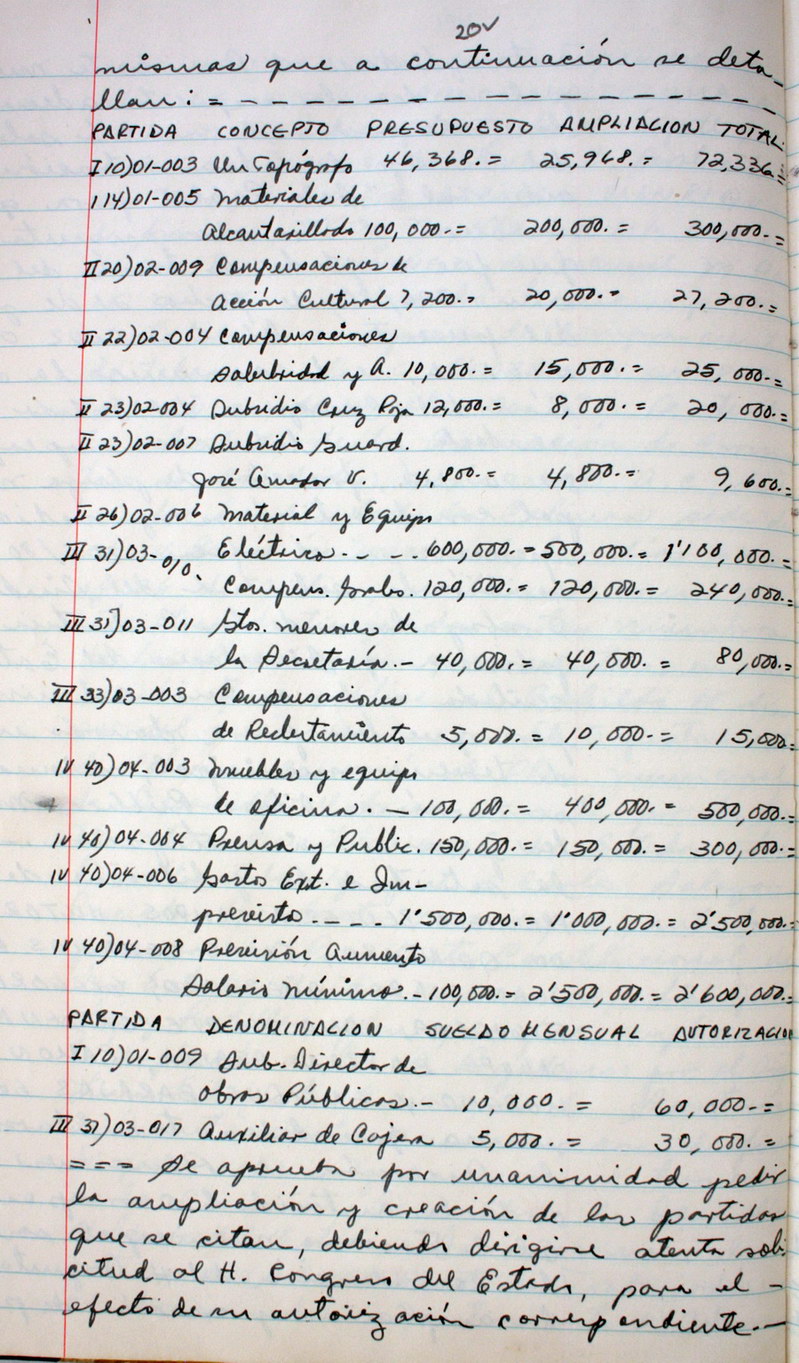 20v
mismas que a continuación se deta-
llan: = - - - - - - - - - - - - - - - -
PARTIDA CONCEPTO PRESUPUESTO AMPLIACION TOTAL.
I 10)01-003 Un Topógrafo 46,368.= 25,968.= 72,336.=
I 14)01-005 Materiales de
Alcantarillado 100,000.= 200,000.= 300,000.=
II 20)02-009 Compensaciones de
Acción Cultural 7,200.= 20,000.= 27,200.=
II 22)02-004 Compensaciones
Salubridad y A. 10,000.= 15,000.= 25,000.=
II 23)02-004 Subsidio Cruz Roja 12,000.= 8,000.= 20,000.=
II 23)02-007 Subsidio Guard.
José Amador V. 4,800.= 4,800.= 9,600.=
II 26)02-006 Material y Equipo
III 31)03-010. Eléctrico. - - . 600,000.= 500,000.= 1'100,000.=
Compens. Grales. 120,000.= 120,000.= 240,000.=
III 31)03-011 Gtos. menores de
la Secretaría.- 40,000.= 40,000.= 80,000.=
III 33)03-003 Compensaciones
de Reclutamiento 5,000.= 10,000.= 15,000.
IV 40)04-003 Muebles y equipo
de oficina. - 100,000.= 400,000.= 500,000.=
IV 40)04-004 Prensa y Public. 150,000.= 150,000.= 300,000.=
IV 40)04-006 Gastos Ext. e Im-
previsto. - - - 1'500,000.= 1'000,000.= 2'500,000.=
IV 40)04-008 Previsión Aumento
Salario Mínimo. - 100,000.= 2'500,000.= 2'600,000.=
PARTIDA DENOMINACION SUELDO MENSUAL AUTORIZACION
I 10)01-009 Sub. Director de
Obras Públicas.- 10,000.= 60,000.=
III 31)03-017 Auxiliar de Cajera 5,000.= 30,000.=
=== Se aprueba por unanimidad pedir
la ampliación y creación de las partidas
que se citan, debiendo dirigirse atenta soli-
citud al H. Congreso del Estado, para el -
efecto de su autorización correspondiente.-